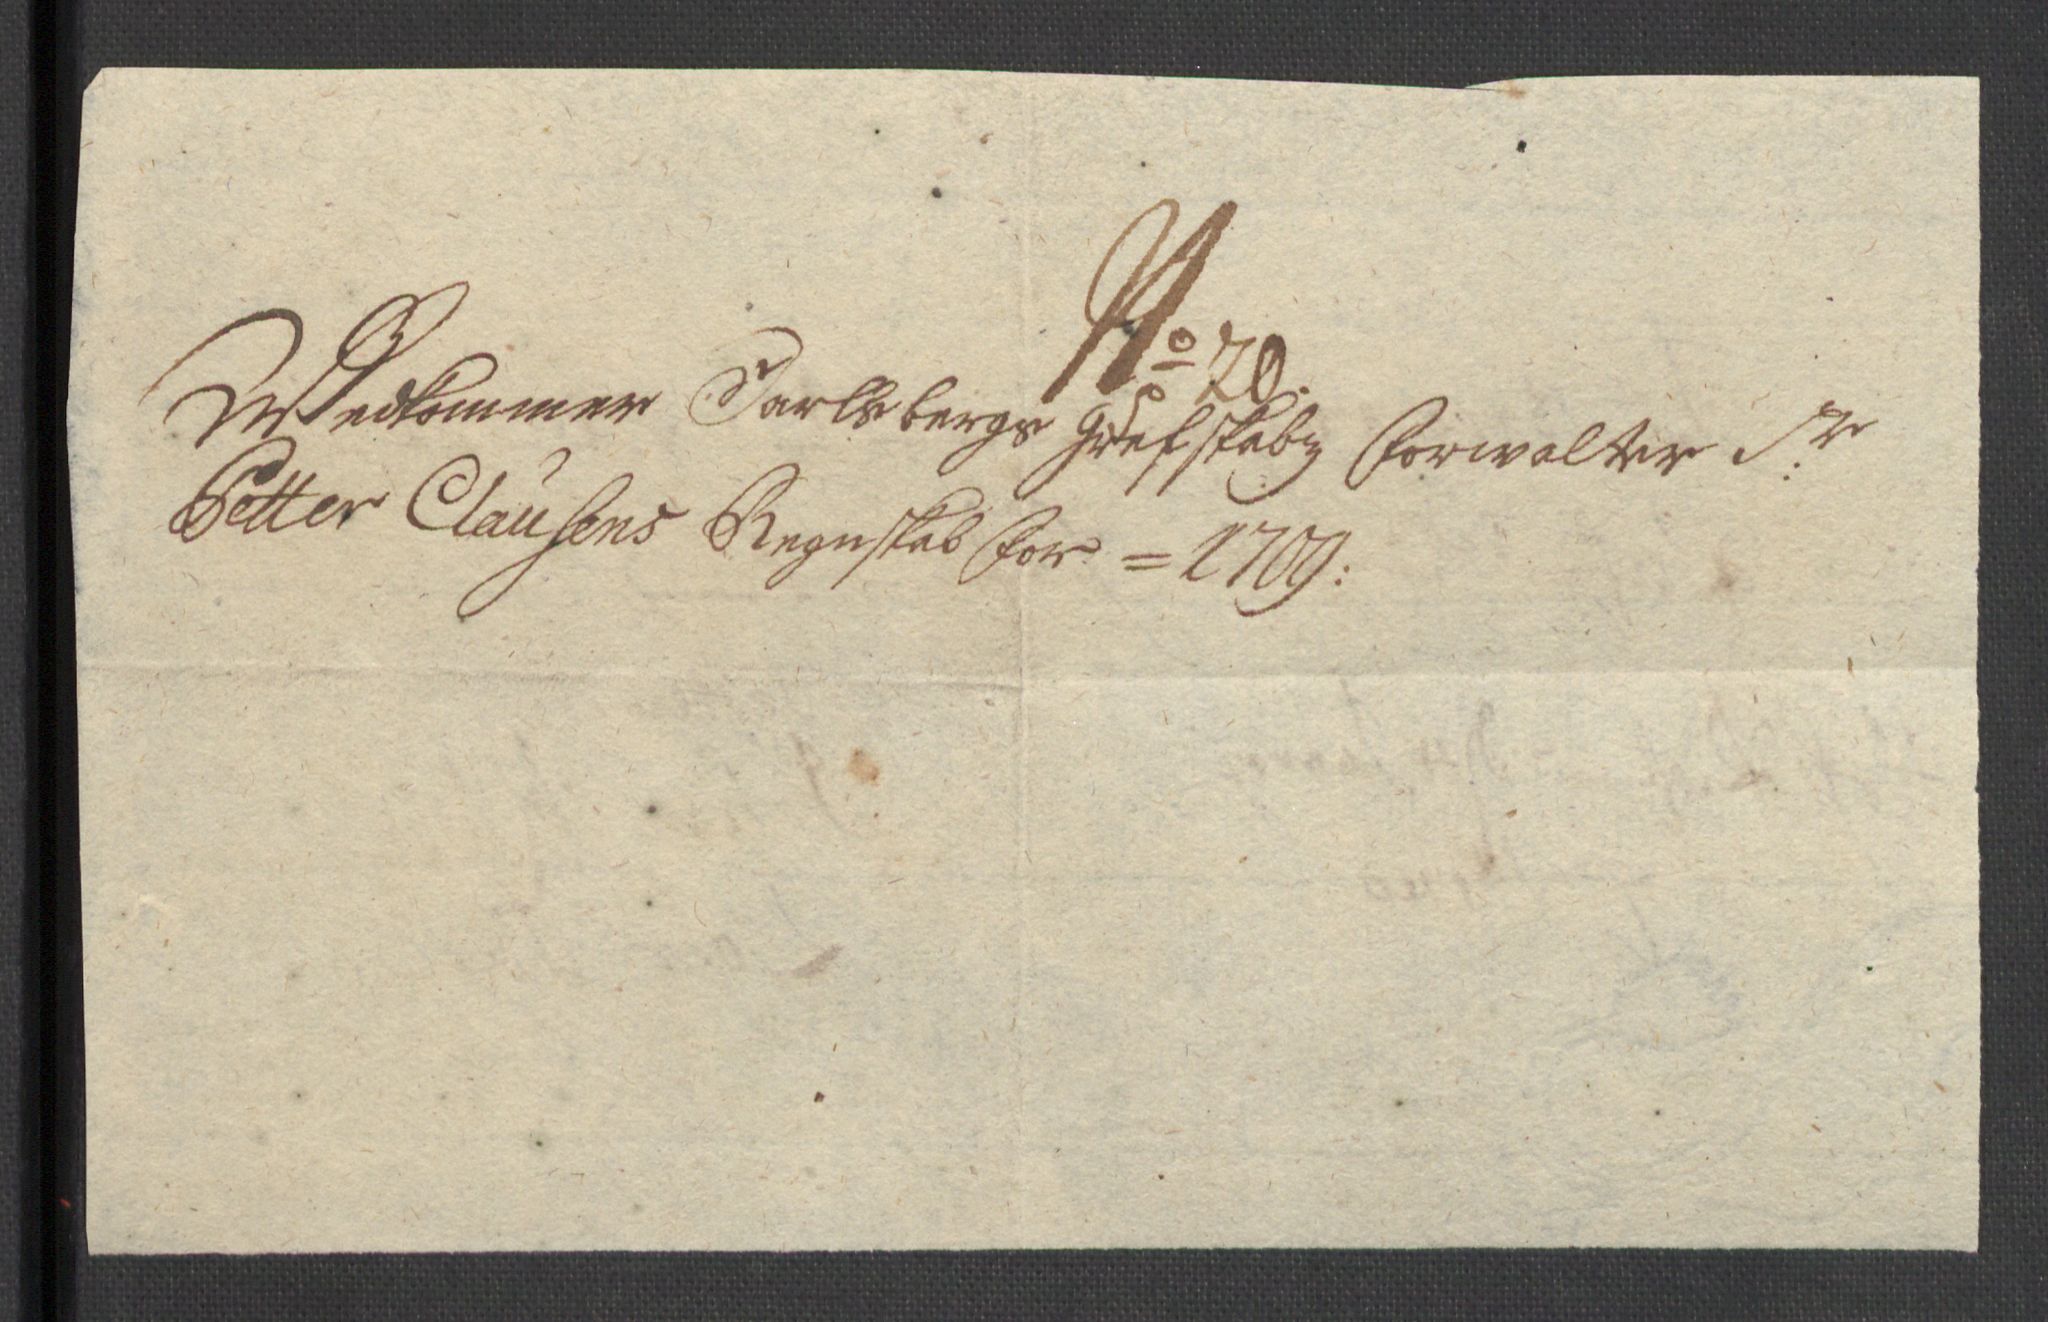 No 20.
Wedkommer Jarlsbergs Grefskabs forwalter Sr:
Petter Clausens Regnskab for = 1709: